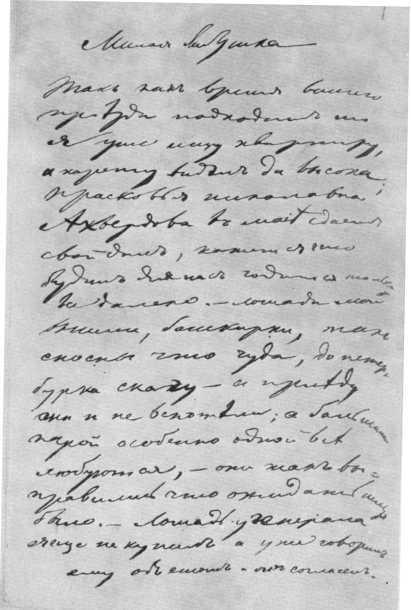 Милая Бабушка
Такъ какъ время вашего
пріѣзда подходитъ то
я уже ищу квартиру,
и карету видѣлъ да высока;
Прасковья Николавна
Ахвердова въ маѣ сдаетъ
свой домъ, кажется что
будитъ для насъ годится только
все далеко. – Лошади мои
вышли, башкирки, такъ
сносны что чуда, до Петер-
бурка скачу – а приѣду
они и не вспотѣли; а большими
парой особенно одной всѣ
любуются, – они такъ вы-
правились что ожидать нельзя
было. – Лошадь у генерала
я еще не купилъ а уже говорилъ
ему объ етомъ – онъ согласенъ.